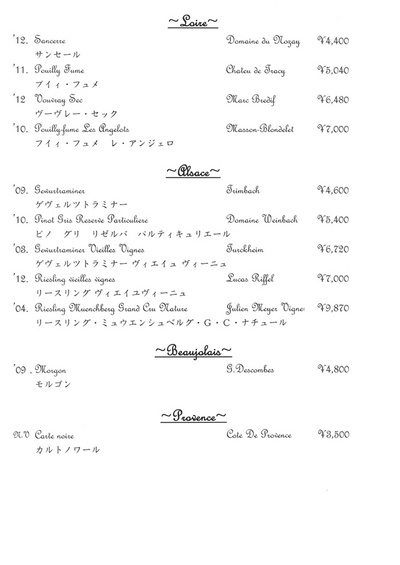 ~Loire~
'12. Sancerre Domaine du Nozay ¥4,400
サンセール
'11. Pouilly Fume Chateu de Tracy ¥5,040
プイィ・フュメ
'12 Vouvray Sec Marc Bredif ¥6,480
ヴーヴレー・セック
'10. Pouilly-fume Les Angelots Masson-Blondelet ¥7,000
フイィ・フュメ レ・アンジェロ
~Alsace~
'09. Gewurtraminer Trimbach ¥4,600
ゲヴェルツトラミナー
'10. Pinot Gris Reserve Particuliere Domaine Weinbach ¥5,400
ピノ グリ リゼルバ パルティキュリエール
'03. Gewurtraminer Vieilles Vignes Turckheim ¥6,720
ゲヴェルツトラミナー ヴィエイュ ヴィーニュ
'12. Riesling vieilles vignes Lucas Riffel ¥7,000
リースリング ヴィエイユヴィーニュ
'04. Riesling Muenchberg Grand Cru Nature Julien Meyer Vigne ¥9,870
リースリング・ミュウエンシュベルグ・G・C・ナチュール
~Beaujolais~
'09 . Morgon G.Descombes ¥4,800
モルゴン
~Provence~
N.V Carte noire Cote De Provence ¥3,500
カルトノワール